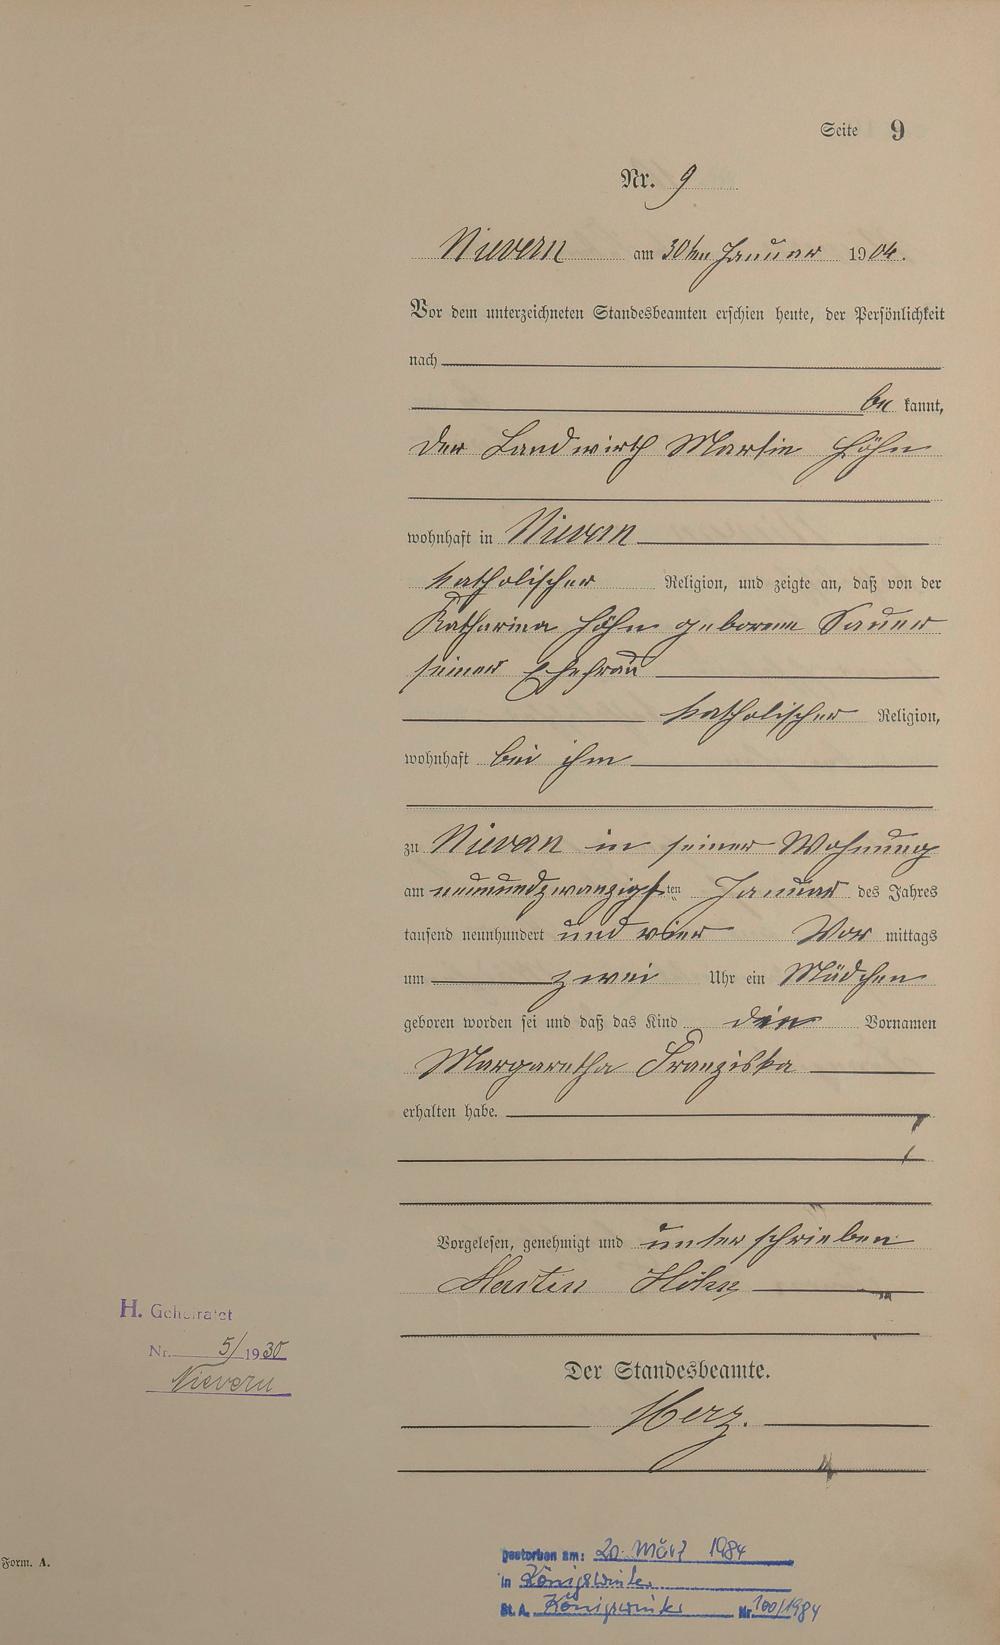 Seite 9
Nr. 9
Nievern am 30ten Januar 1904.
Vor dem unterzeichneten Standesbeamten erschien heute, der Persönlichkeit
nach
be kannt,
der Landwirth Martin Höhn
wohnhaft in Nievern
katholischer Religion, und zeigte an, daß von der
Katharina Höhn geborene Sauer
seiner Ehefrau
katholischer Religion,
wohnhaft bei ihm
zu Nievern in seiner Wohnung
am neunundzwanzigsten Januar des Jahres
tausend neunhundert und vier Vor mittags
um zwei Uhr ein Mädchen
geboren worden sei und daß das Kind die Vornamen
Margaretha Franziska
erhalten habe.
Vorgelesen, genehmigt und unterschrieben
Martin Höhn
H. Geheiratet
Nr. 5/1930
Nievern
Der Standesbeamte.
Herz.
Form. A.
gestorben am: 20. März 1984
in Königswinter
St. A. Königswinter Nr. 100/1984